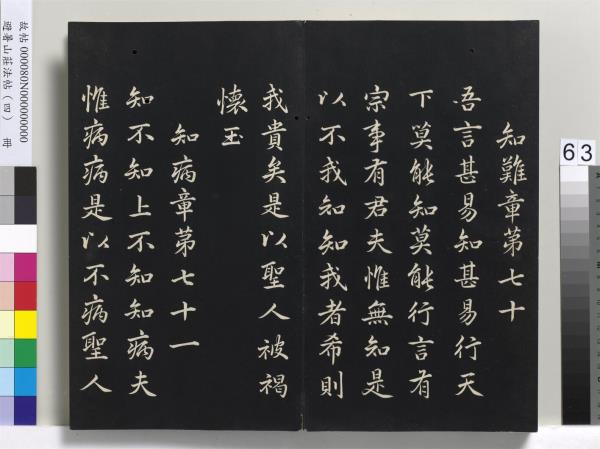 知難章第七十
吾言甚易知甚易行天
下莫能知莫能行言有
宗事有君夫惟無知是
以不我知知我者希則
我貴矣是以聖人被褐
懷玉
知病章第七十一
知不知上不知知病夫
惟病病是以不病聖人
故帖 000080N000000000
避暑山莊法帖（四） 冊
63